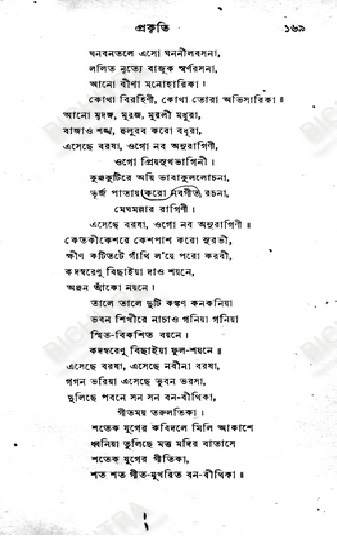 প্রকৃতি ১৬৯
ঘনবনতলে এসো ঘননীলবসনা,
ললিত নৃত্যে বাজুক স্বর্ণরসনা,
আনো বীণা মনোহারিকা।
কোথা বিরহিণী, কোথা তোরা অভিসারিকা॥
আনো মৃদঙ্গ, মুরজ, মুরলী মধুরা,
বাজাও শঙ্খ, হুলুরব করো বধুরা,
এসেছে বরষা, ওগো নব অনুরাগিণী,
ওগো প্রিয়সুখভাগিনী।
কুঞ্জকুটিরে অয়ি ভাবাকুললোচনা,
ভূর্জ পাতায় করো নবগীত রচনা,
মেঘমল্লার রাগিণী।
এসেছে বরষা, ওগো নব অনুরাগিণী॥
কেতকীকেশরে কেশপাশ করো সুরভী,
ক্ষীণ কটিতটে গাঁথি ল'য়ে পরো করবী,
কদম্বরেণু বিছাইয়া দাও শয়নে,
অঞ্জন আঁকো নয়নে।
তালে তালে দুটি কঙ্কণ কনকনিয়া
ভবন শিখীরে নাচাও গনিয়া গনিয়া
স্মিত-বিকশিত বয়নে।
কদম্বরেণু বিছাইয়া ফুল-শয়নে॥
এসেছে বরষা, এসেছে নবীনা বরষা,
গগন ভরিয়া এসেছে ভুবন ভরসা,
দুলিছে পবনে সন সন বন-বীথিকা,
গীতময় তরুলতিকা।
শতেক যুগের কবিদলে মিলি আকাশে
ধ্বনিয়া তুলিছে মত্ত মদির বাতাসে
শতেক যুগের গীতিকা,
শত শত গীত-মুখরিত বন-বীথিকা॥